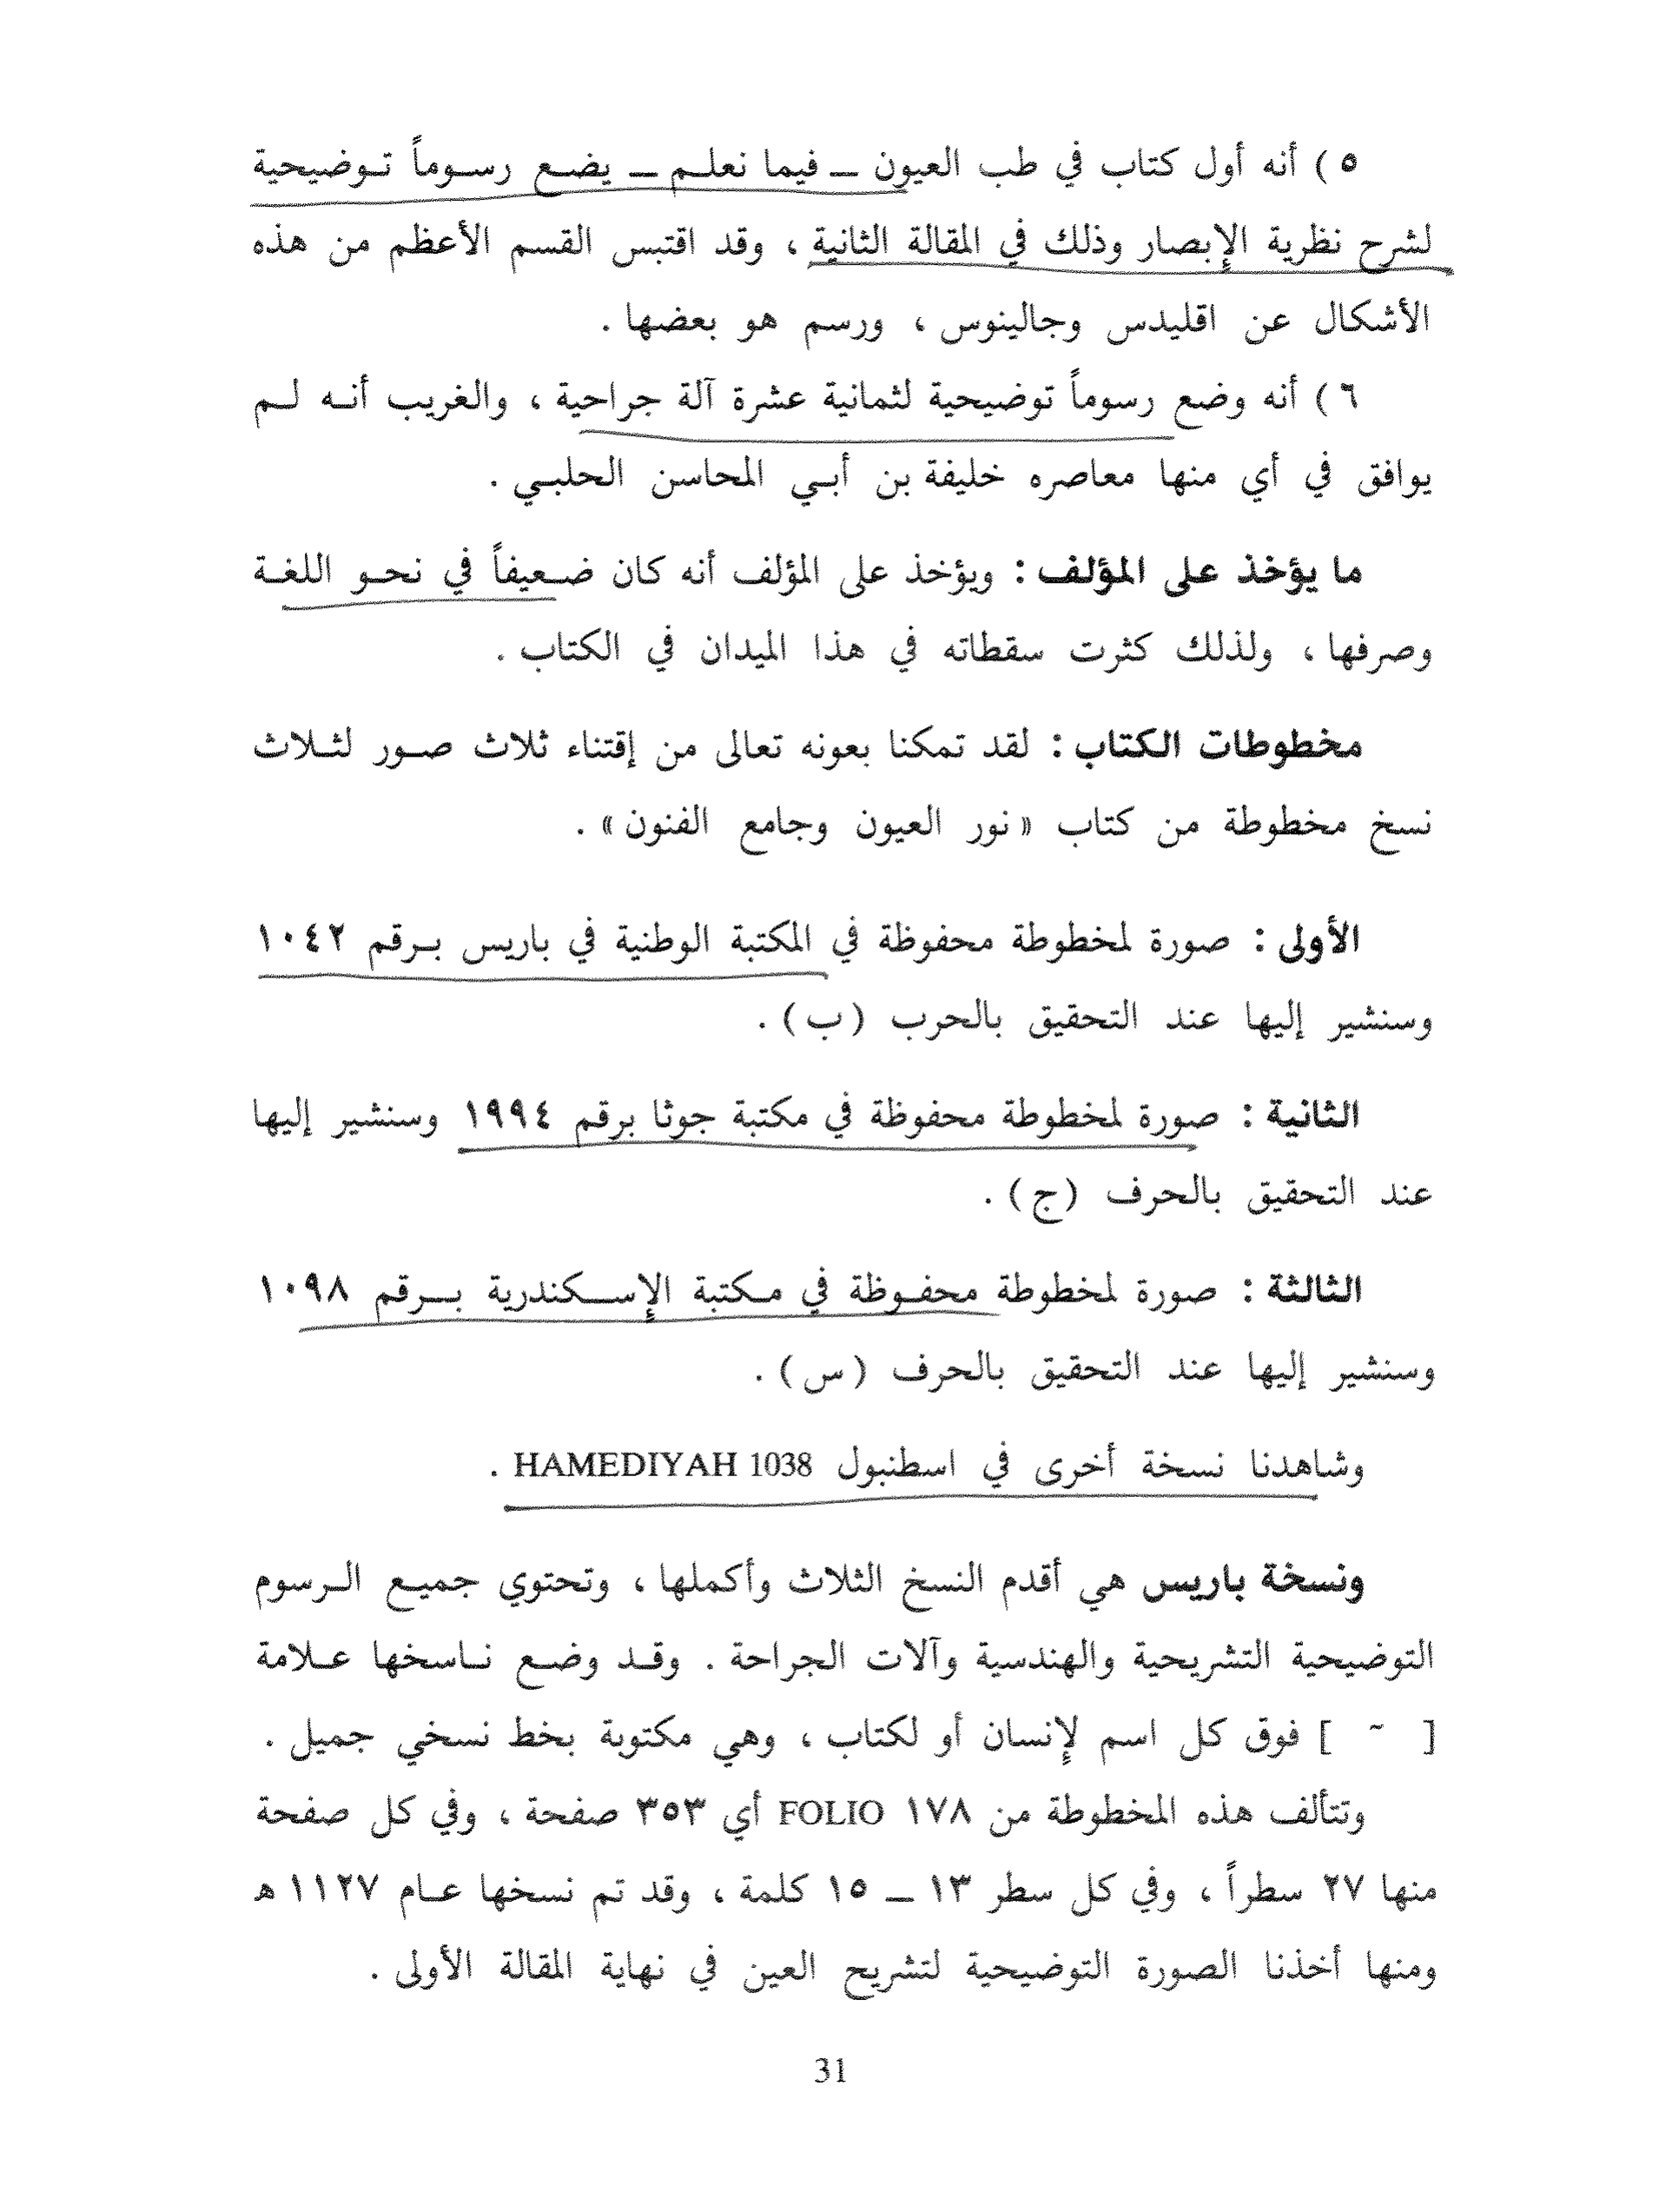 ٥ ) أنه أول كتاب في طب العيون ــ فيما نعلم ــ يضع رسوماً توضيحية
لشرح نظرية الإبصار وذلك في المقالة الثانية ، وقد اقتبس القسم الأعظم من هذه
الأشكال عن اقليدس وجالينوس ، ورسم هو بعضها .
٦ ) أنه وضع رسوماً توضيحية لثمانية عشرة آلة جراحية ، والغريب أنه لم
يوافق في أي منها معاصره خليفة بن أبي المحاسن الحلبي .
ما يؤخذ على المؤلف : ويؤخذ على المؤلف أنه كان ضعيفاً في نحو اللغة
وصرفها ، ولذلك كثرت سقطاته في هذا الميدان في الكتاب .
مخطوطات الكتاب : لقد تمكنا بعونه تعالى من إقتناء ثلاث صور لثلاث
نسخ مخطوطة من كتاب « نور العيون وجامع الفنون » .
الأولى : صورة لمخطوطة محفوظة في المكتبة الوطنية في باريس برقم ١٠٤٢
وسنشير إليها عند التحقيق بالحرب ( ب ) .
الثانية : صورة لمخطوطة محفوظة في مكتبة جوثا برقم ١٩٩٤ وسنشير إليها
عند التحقيق بالحرف ( ج ) .
الثالثة : صورة لمخطوطة محفوظة في مكتبة الإسكندرية برقم ١٠٩٨
وسنشير إليها عند التحقيق بالحرف ( س ) .
وشاهدنا نسخة أخرى في اسطنبول HAMEDIYAH 1038 .
ونسخة باريس هي أقدم النسخ الثلاث وأكملها ، وتحتوي جميع الرسوم
التوضيحية التشريحية والهندسية وآلات الجراحة . وقد وضع ناسخها علامة
[ ~ ] فوق كل اسم لإنسان أو لكتاب ، وهي مكتوبة بخط نسخي جميل .
وتتألف هذه المخطوطة من ١٧٨ FOLIO أي ٣٥٣ صفحة ، وفي كل صفحة
منها ٢٧ سطراً ، وفي كل سطر ١٣ ــ ١٥ كلمة ، وقد تم نسخها عام ١١٢٧ هـ
ومنها أخذنا الصورة التوضيحية لتشريح العين في نهاية المقالة الأولى .
31